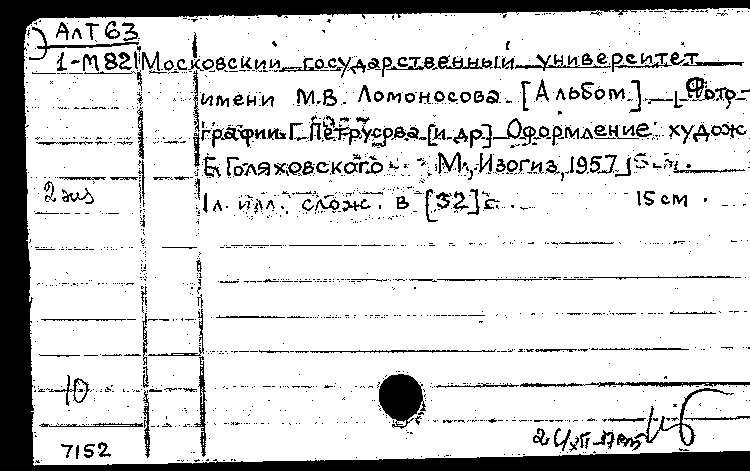 АлТ 63
1-М 82 Московский государственный университет
имени М.В. Ломоносова. [Альбом]. [Фото-
графии Г. Петрусова [и др] Оформление худож
Б. Голяховского М., Изогиз, 1957
2 экз 1 л. илл. слож. в [32] с. 15 см.
10
7152